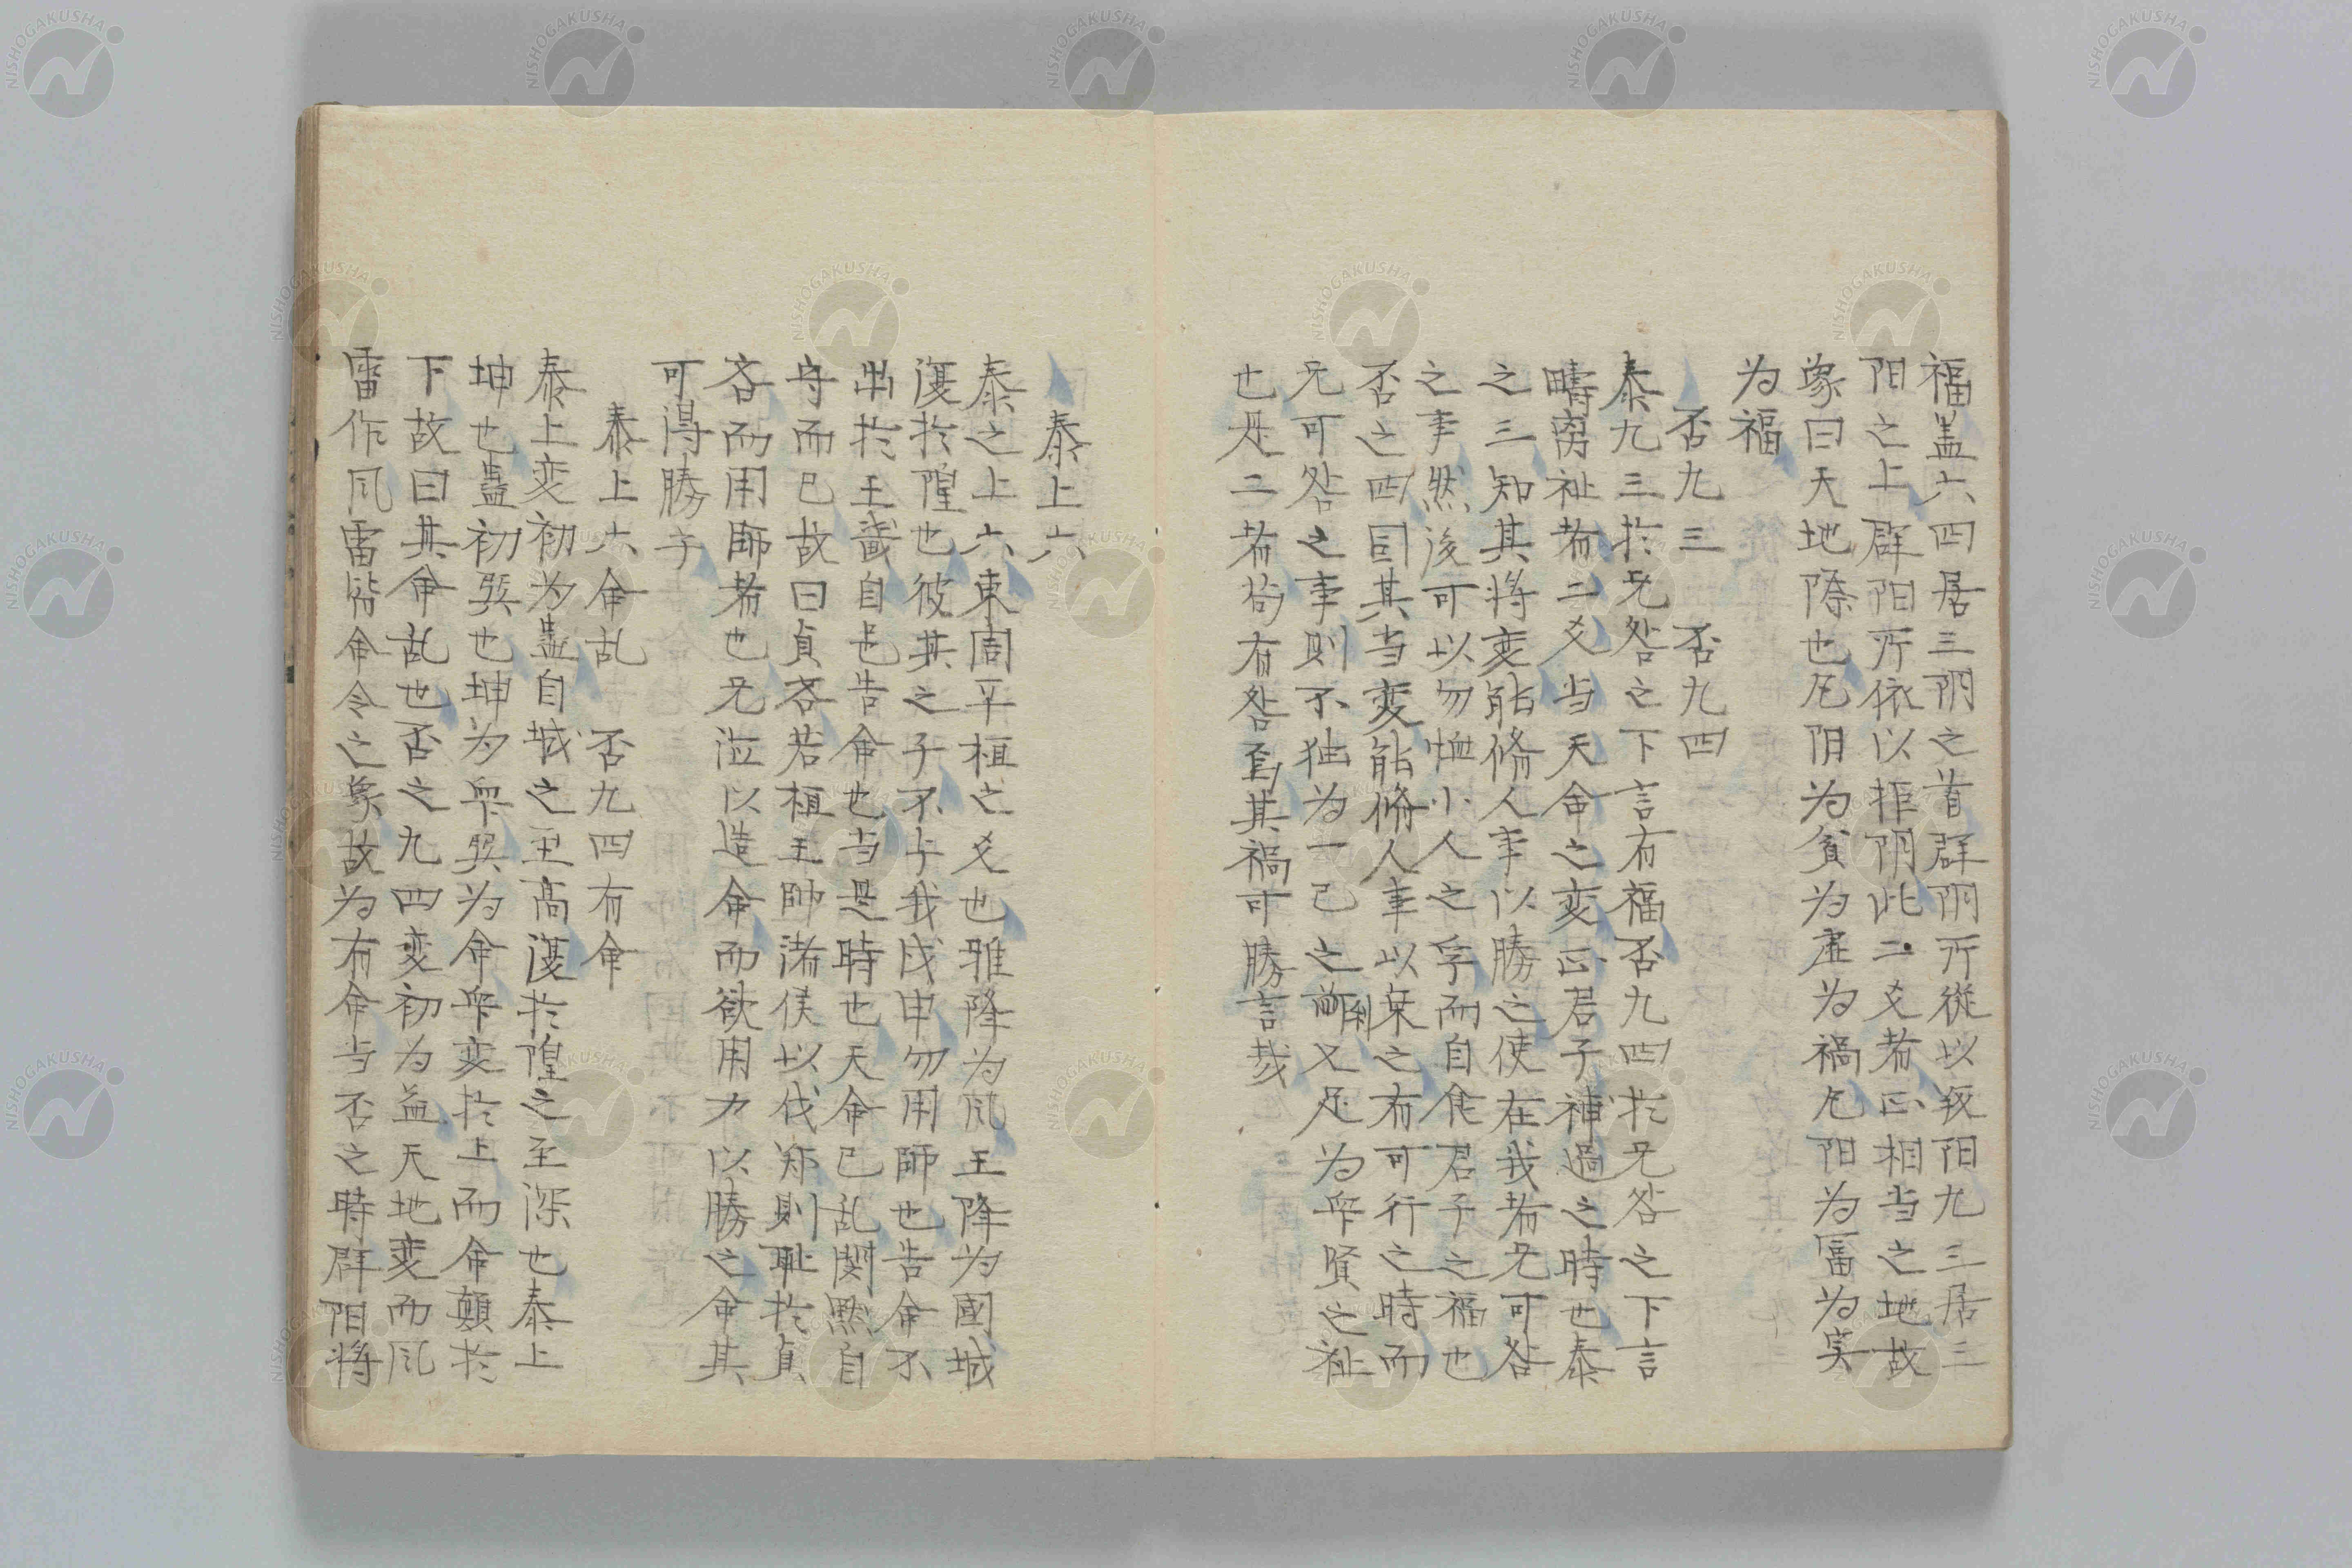 福盖六四居三阴之首群阴所從以敌阳九三居三
阳之上群阳所依以拒阴此二爻者正相当之地故
象曰天地際也凡阴为貧为虚为禍凡阳为富为実
为福
否九三　否九四
泰九三於无咎之下言有福否九四於无咎之下言
疇离祉者二爻当天命之変正君子補過之時也泰
之三知其将変能脩人事以勝之使在我者无可咎
之事然後可以勿恤小人之孚而自食君子之福也
否之四因其当変能脩人事以乗之有可行之時而
无可咎之事則不独为一己之利又足为众贤之祉
也是二者苟有咎焉其禍可勝言哉
泰上六
泰之上六東周平桓之爻也雅降为风王降为國城
復於隍也彼其之子不与我戍申勿用師也告命不
出於王畿自邑告命也当是時也天命已乱関黙自
守而已故曰貞吝若桓王帥诸侯以伐郑則耻於貞
吝而用師者也无涖以造命而欲用力以勝之命其
可得勝乎
泰上六命乱　否九四有命
泰上変初为蠱自城之至高復於隍之至深也泰上
坤也蠱初巽也坤为众巽为命众変於上而命顛於
下故曰其命乱也否之九四変初为益天地変而风
雷作风雷皆命令之象故为有命当否之時群阳将
NISHOGAKUSHA